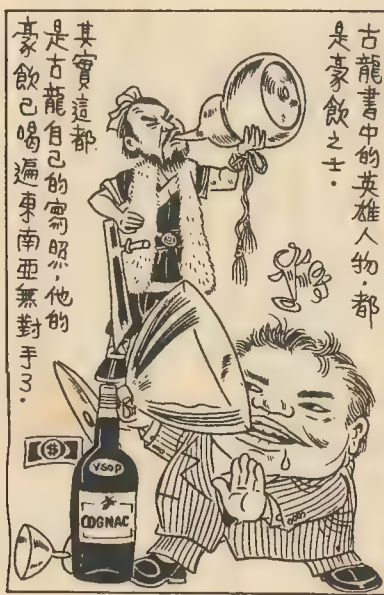 古龍書中的英雄人物,都
是豪飲之士.
其實這都
是古龍自己的寫照,他的
豪飲已喝遍東南亞無對手了.
$
VSOP
COGNAC